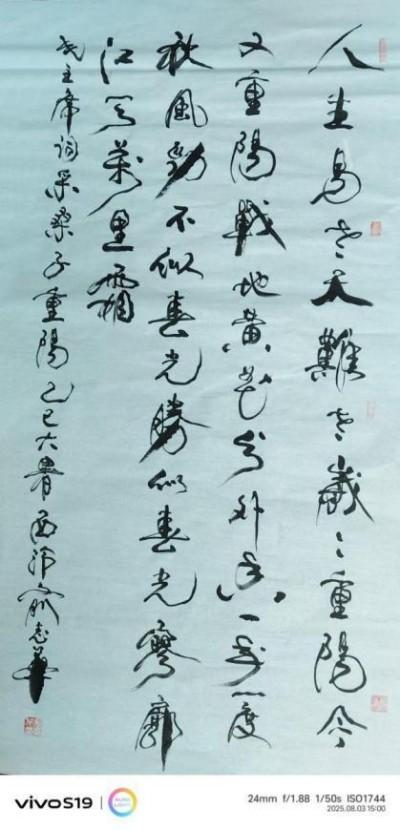 人生易老天難老歲々重陽今
又重陽戰地黃花分外香一年一度
秋風勁不似春光勝似春光寥廓
江天萬里霜
毛主席詞采桑子重陽乙巳大暑
vivo S19
24mm f/1.88 1/50s ISO1744
2025.08.03 15:00